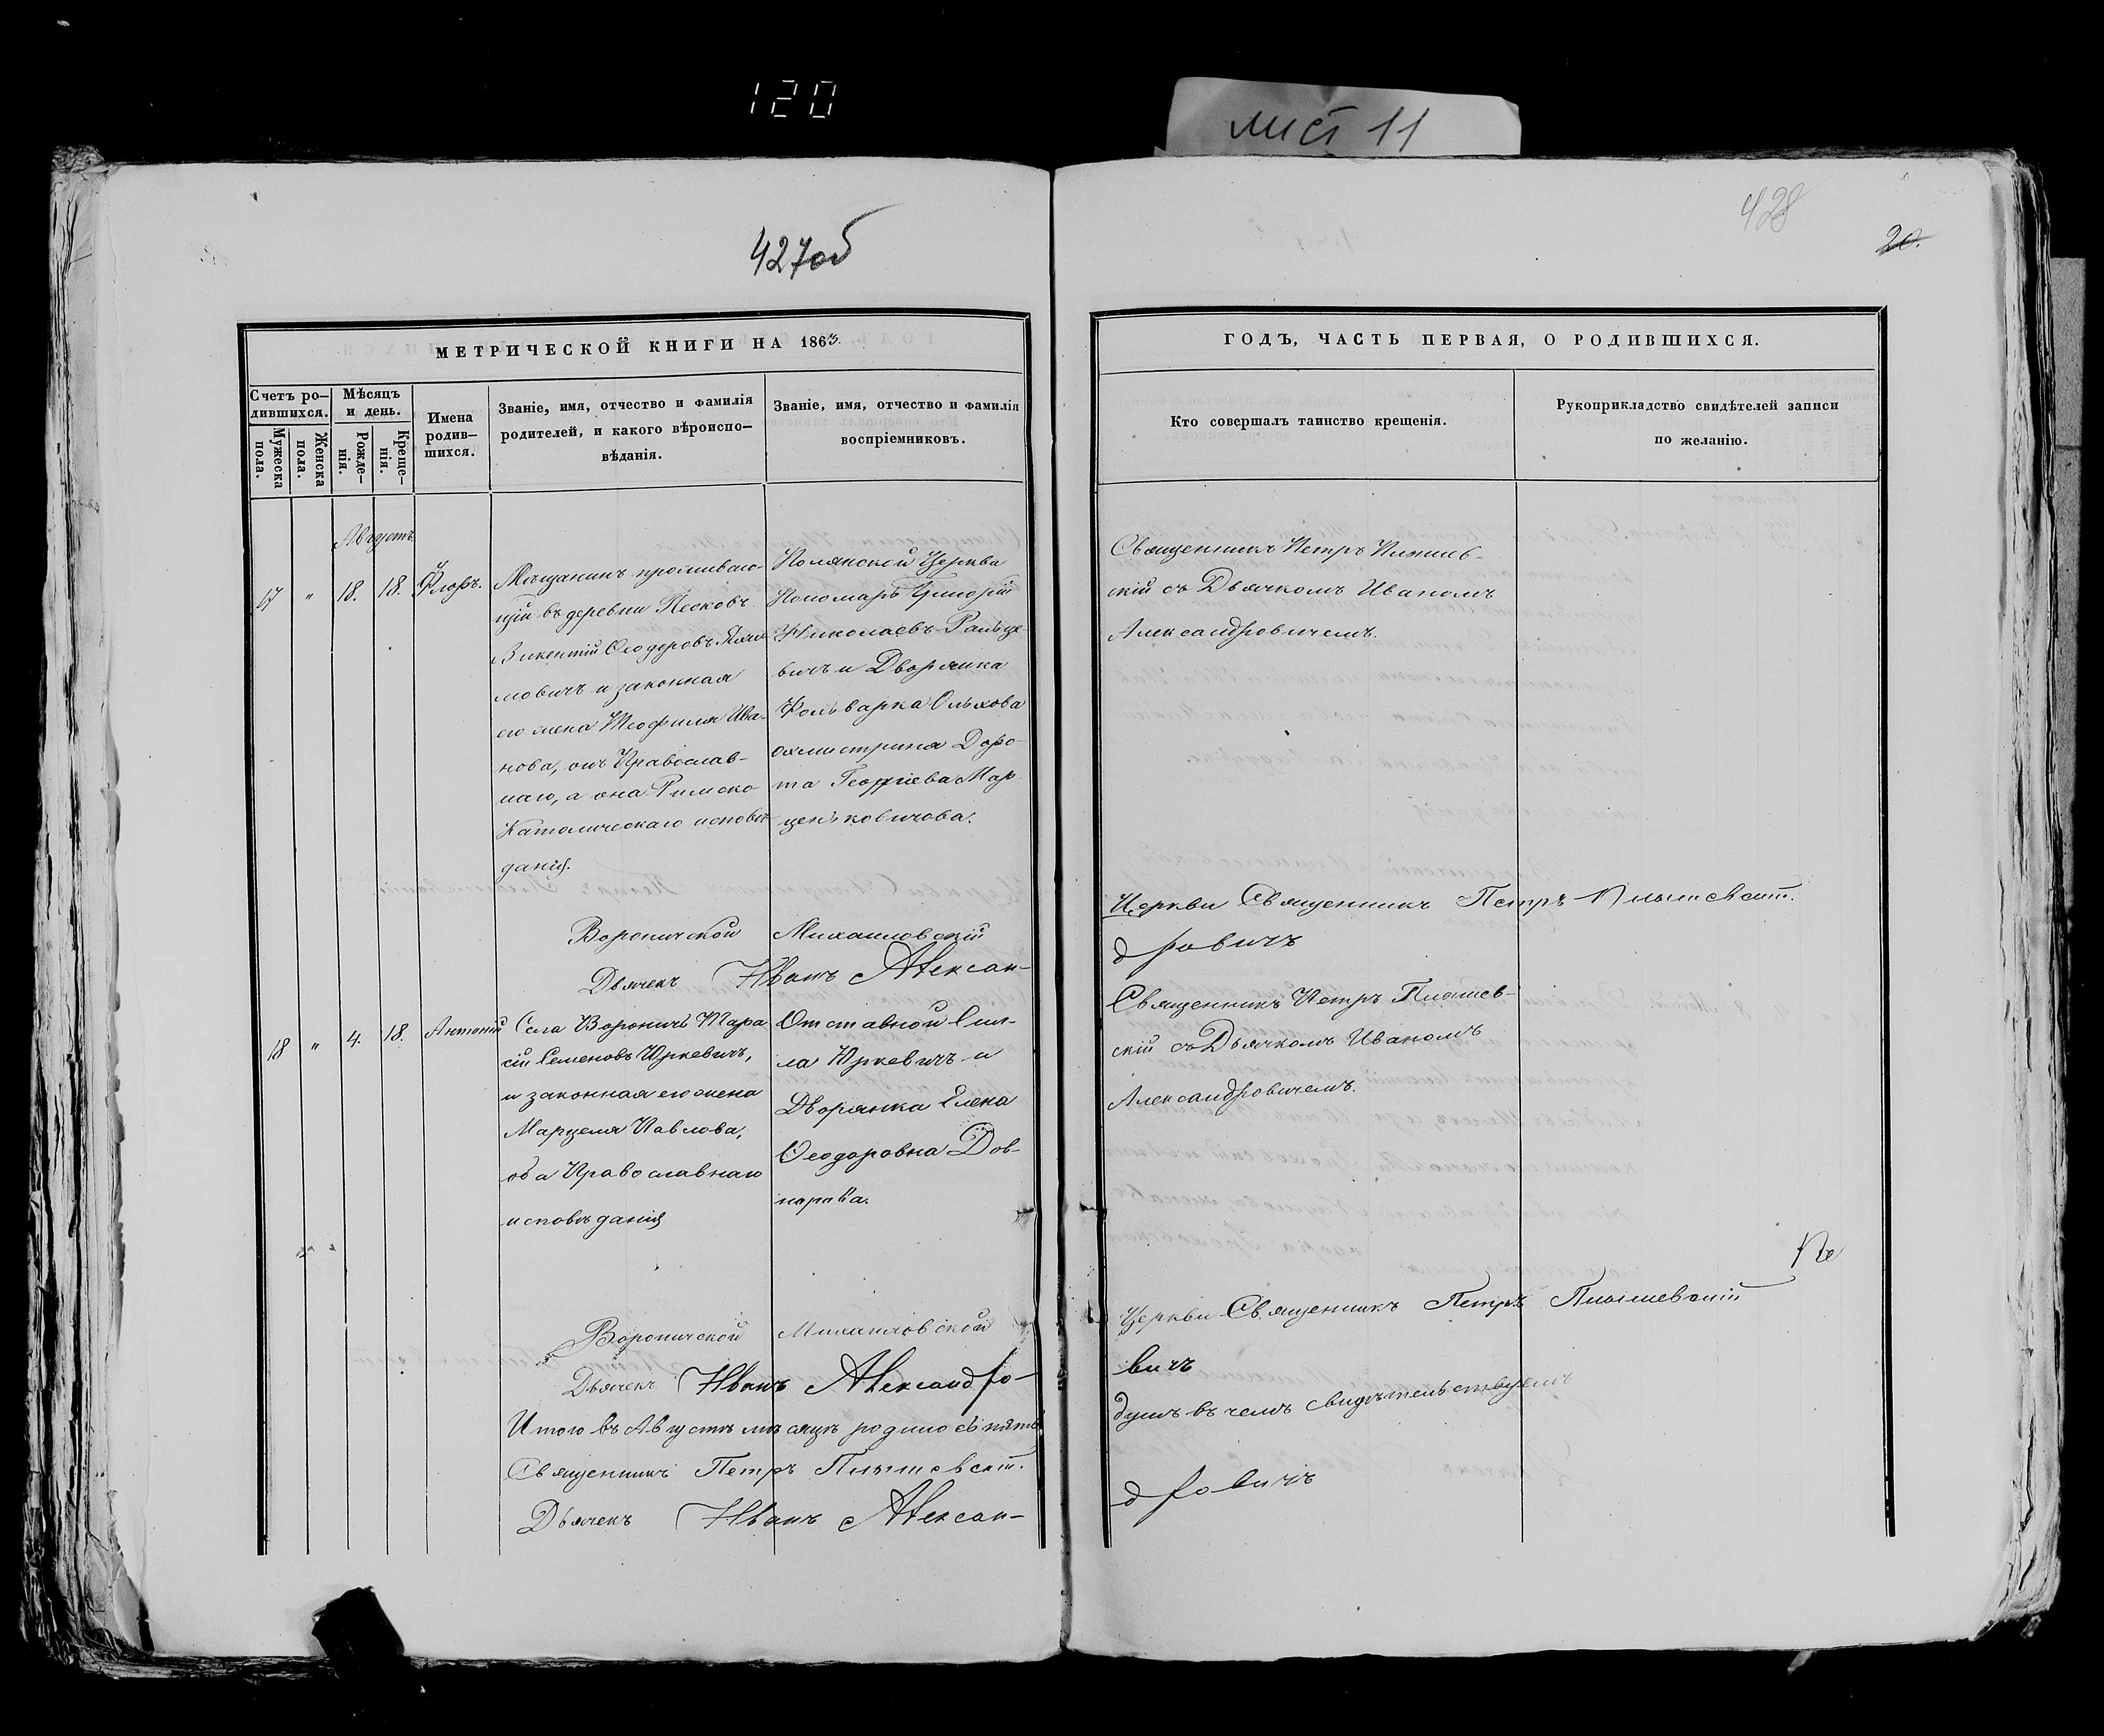 120
лист 11
427об
428
20.
МЕТРИЧЕСКОЙ КНИГИ НА 1863.
ГОДЪ, ЧАСТЬ ПЕРВАЯ, О РОДИВШИХСЯ.
Счетъ ро-
дившихся.
Мужеска
пола.
Женска
пола.
Мѣсяцъ
и день.
Рожде-
нія.
Креще-
нія.
Имена
родив-
шихся.
Званіе, имя, отчество и фамилія
родителей, и какого вѣроиспо-
вѣданія.
Званіе, имя, отчество и фамилія
воспріемниковъ.
Кто совершалъ таинство крещенія.
Рукоприкладство свидѣтелей записи
по желанію.
Августъ
17 " 18. 18. Флоръ.
Мѣщанинъ проживаю-
щій въ деревни Песковъ
Викентій Ѳеодоровъ
мовичъ и законная
его жена Теофиля Ива-
нова, онъ Православ-
наго, а она Римско
Католическаго исповѣ-
данія.
Полянской Церкви
Пономарь Григорій
Николаевъ Ральце-
вичъ и Дворянка
Фольварка Ольхова
охмистриня Доро-
та Георгіева Мар-
ценьковичова.
Священникъ Петръ
скій съ Дьячкомъ Иваномъ
Александровичемъ.
Вороничской Михаиловскій
Церкви Священникъ Петръ
Дьячекъ Иванъ Алексан-
дровичъ
18 " 4. 18. Антоній
Села Вороничъ Тара
сій Семеновъ Юркевичъ,
и законная его жена
Марцеля Павлова,
оба Православнаго
исповѣданія
Отставной Сил-
ла Юркевичъ и
Дворянка Елена
Ѳеодоровна Дов-
нарова.
Священникъ Петръ
скій съ Дьячкомъ Иваномъ
Александровичемъ.
Вороничской Михаиловской
Церкви Священникъ Петръ
Дьячекъ Иванъ Александро-
вичъ
Итого въ Августѣ мѣсяцѣ родилось пять
душъ въ чемъ свидѣтельствуемъ
Священникъ Петръ
Дьячекъ Иванъ Алексан-
дровичъ